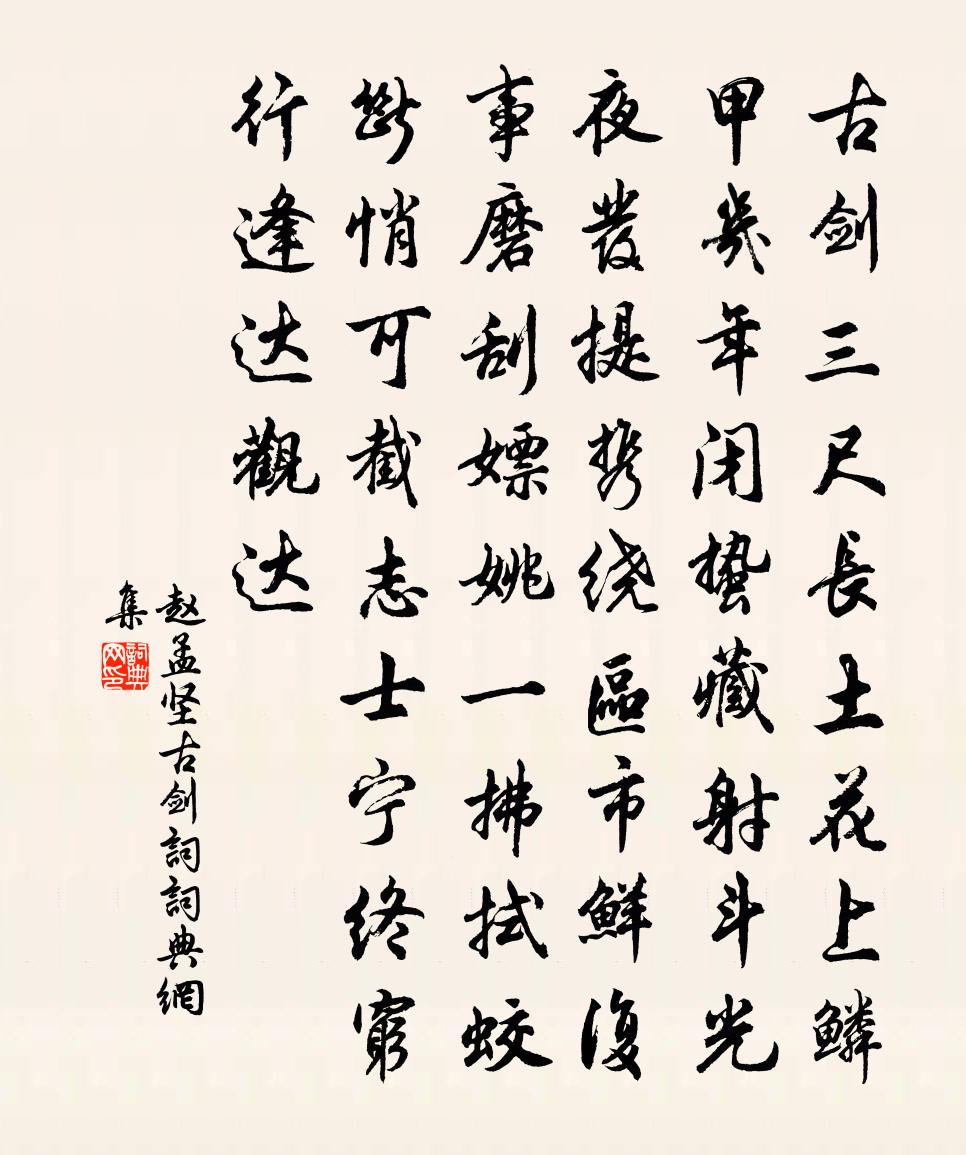 古剑三尺長土花上鳞
甲幾年闭蛰藏射斗光
夜發提携绕區市鲜復
事磨刮嫖姚一拂拭蛟
斷悄可截志士宁终窮
行逢达觀达
赵孟坚古剑詞詞典網
集
詞典网印